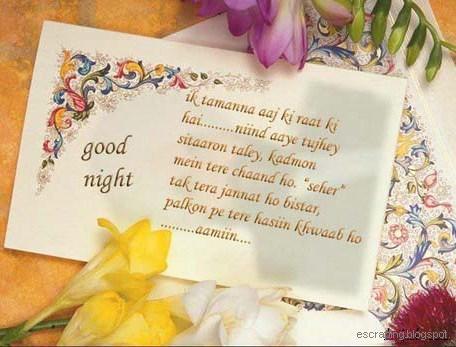 good
night
ik tamanna aaj ki raat ki
hai.........niind aaye tujhey
sitaaron taley, kadmon
mein tere chaand ho. "seher"
tak tera jannat ho bistar,
palkon pe tere hasiin khwaab ho
.........aamiin....
escraping.blogspot.